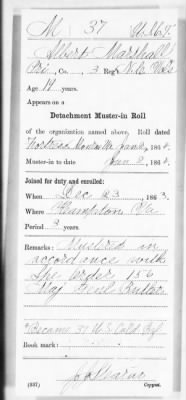 M 37 U.S.C.T.
Albert Marshall
Pvt, Co. 3 Reg't N.C. Vols
Age 19 years.
Appears on a
Detachment Muster-in Roll
of the organization named above. Roll dated
Fortress Monroe Va Jan 2, 1864.
Muster-in to date Jan 2, 1864.
Joined for duty and enrolled:
When Dec 23, 1863.
Where Hampton Va
Period 3 years.
Remarks: Mustered in
accordance with
Spe Order 156
Maj Genl Butler
*Became 37 U S Cold Inf
Book mark:
(337) Copyist.